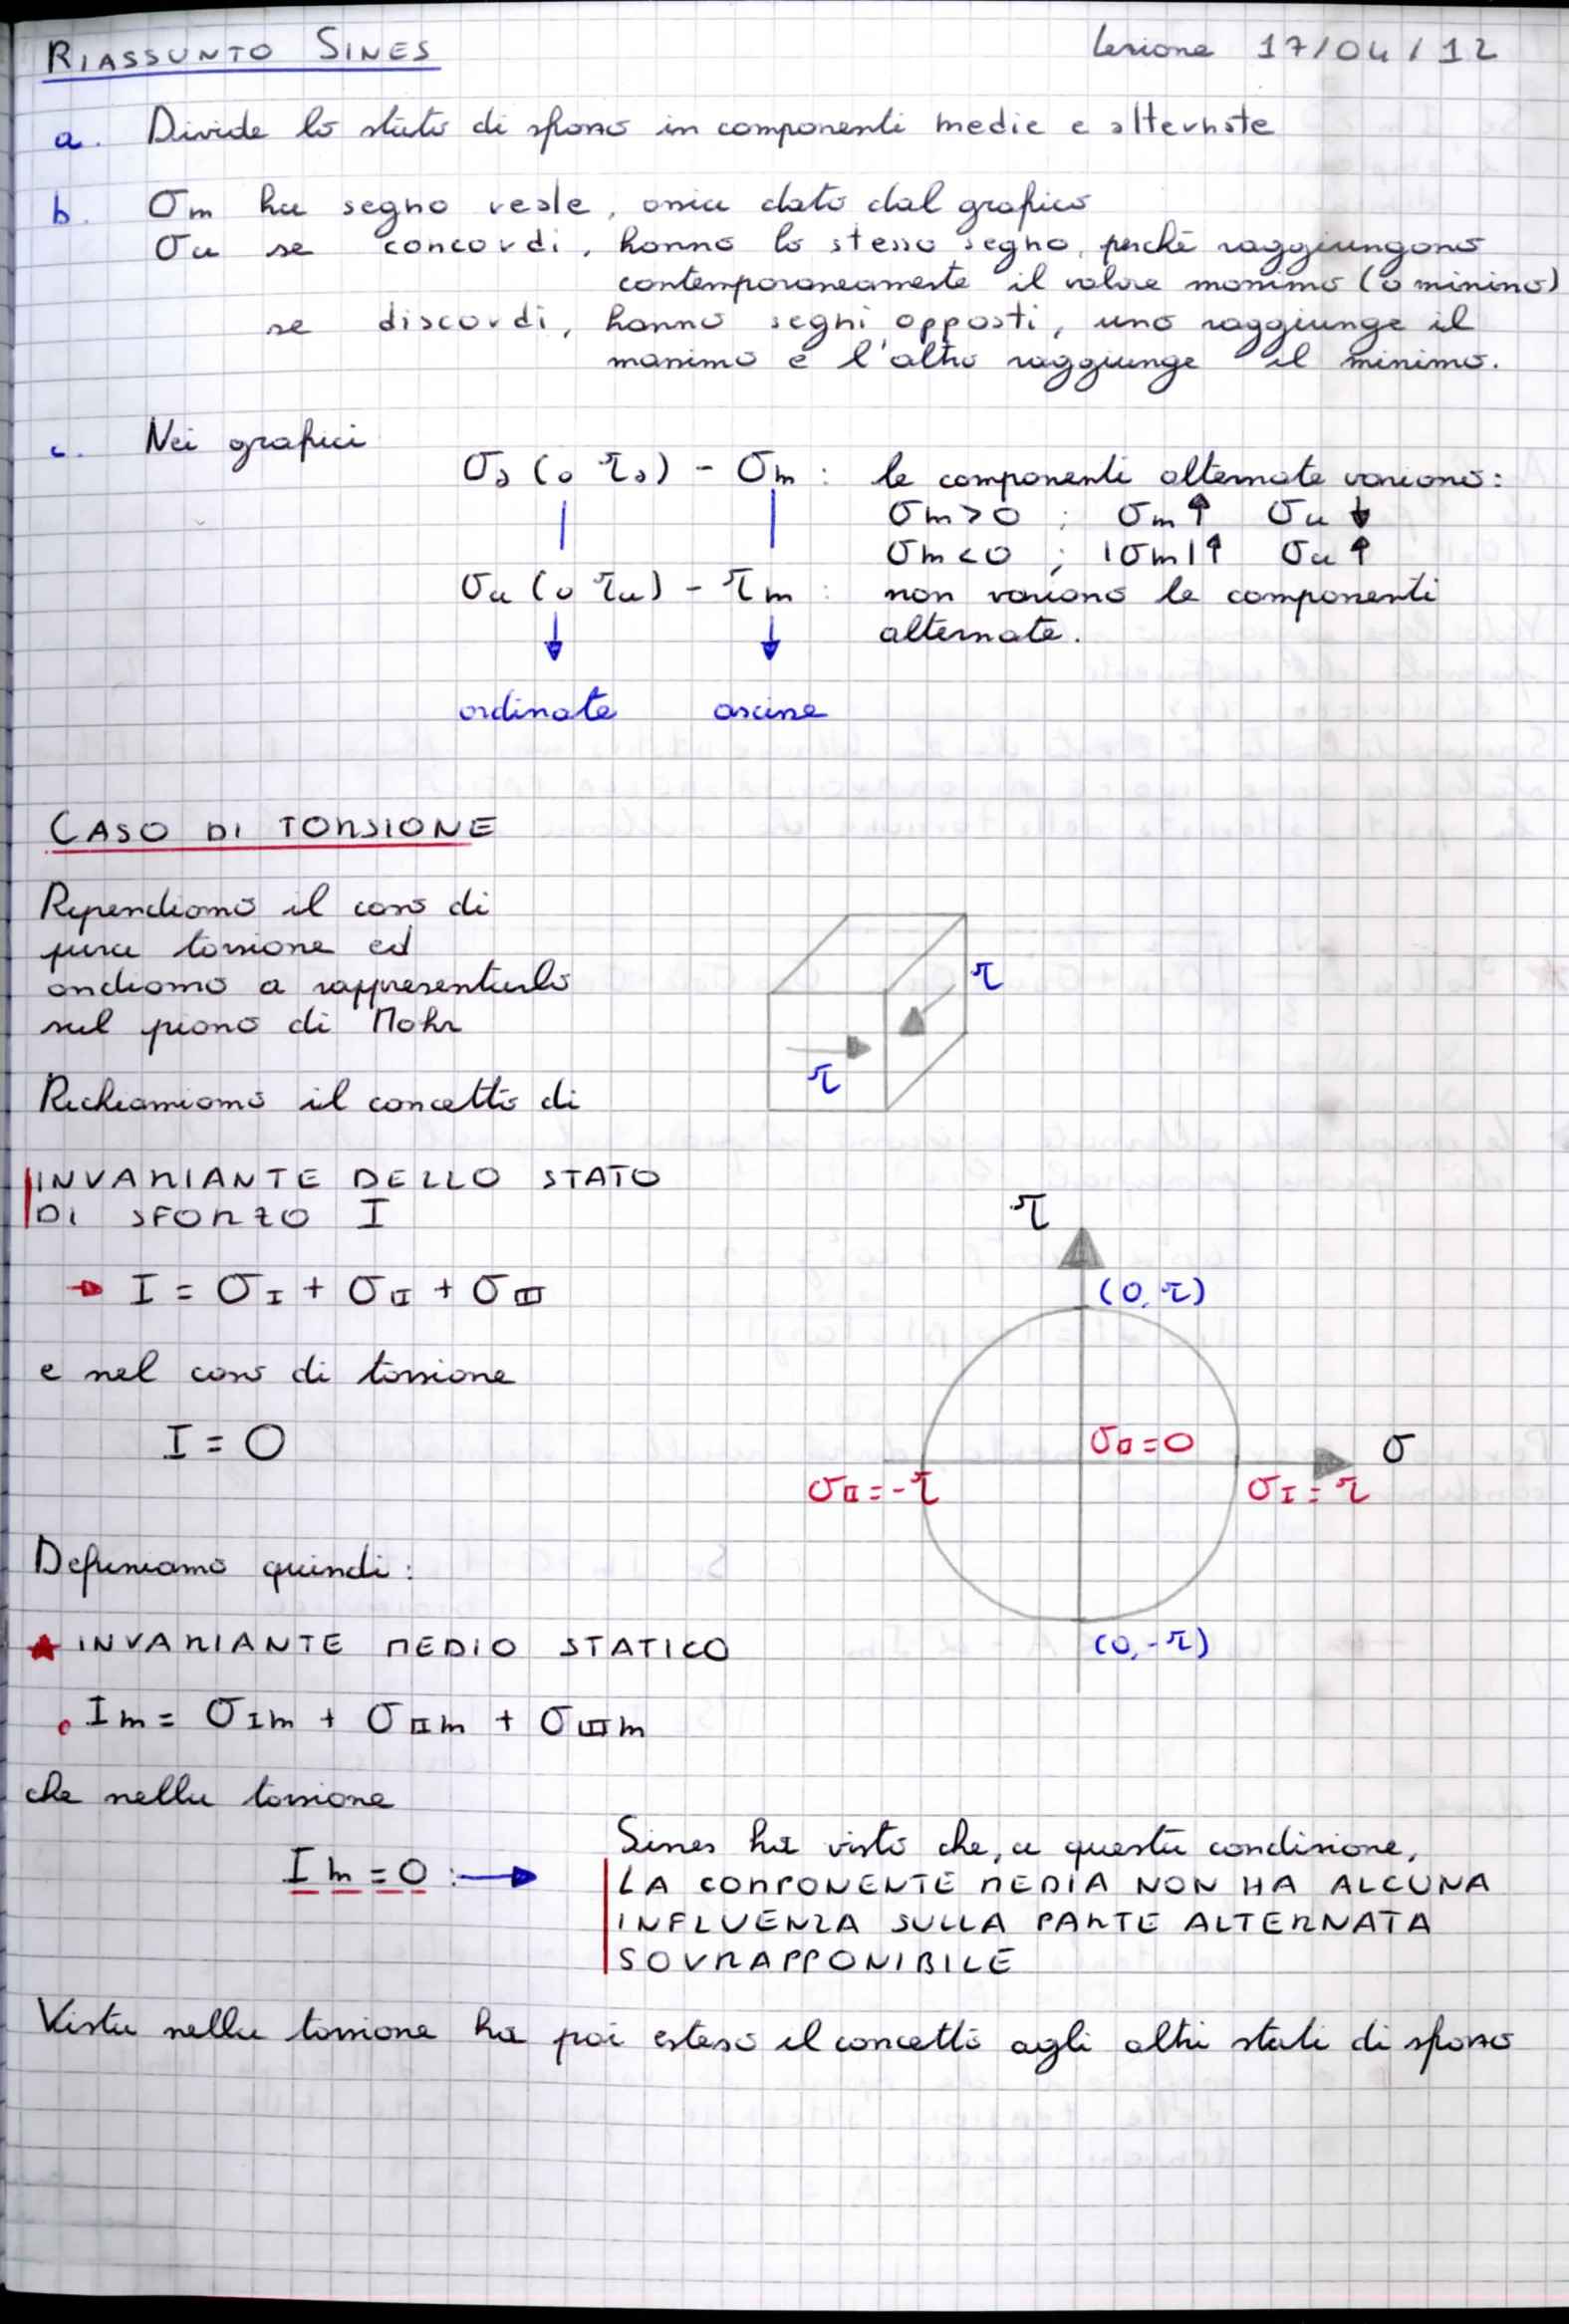 RIASSUNTO SINES
Lezione 17/04/12
a. Divide lo stato di sforzo in componenti medie e alternate
b. σm ha segno reale, ossia dato dal grafico
σa se concordi, hanno lo stesso segno, perchè raggiungono
contemporaneamente il valore massimo (o minimo)
se discordi, hanno segni opposti, uno raggiunge il
massimo e l'altro raggiunge il minimo.
c. Nei grafici
σa (o τa) - σm : le componenti alternate variano:
σm>0 ; σm↑ σa↓
σm<0 ; |σm|↑ σa↑
σa (o τa) - τm : non variano le componenti
alternate.
ordinate ascisse
CASO DI TORSIONE
Riprendiamo il caso di
pura torsione ed
andiamo a rappresentarlo
sul piano di Mohr
τ
τ
Richiamiamo il concetto di
INVARIANTE DELLO STATO
DI SFORZO I
→ I = σI + σII + σIII
e nel caso di torsione
I = 0
τ
(0,τ)
σII=0
σ
σII=-τ
σI=τ
(0,-τ)
Definiamo quindi:
★ INVARIANTE MEDIO STATICO
Im = σIm + σIIm + σIIIm
che nella torsione
Im = 0 : →
Sines ha visto che, a questa condizione,
LA COMPONENTE MEDIA NON HA ALCUNA
INFLUENZA SULLA PARTE ALTERNATA
SOVRAPPONIBILE
Vista nella torsione ha poi esteso il concetto agli altri stati di sforzo